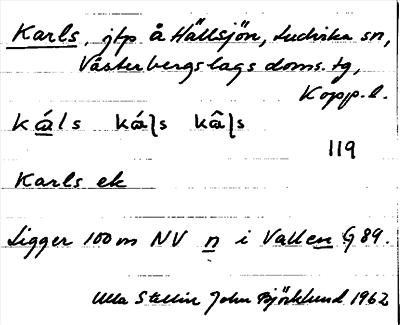 Karls, jfp å Hällsjön, Ludvika sn,
Västerbergslags doms. tg,
Kopp. l.
ká̲ls káʅs kâʅs
119
Karls ek
Ligger 100 m NV n i Vallen G 89.
Ulla Stellin John Björklund 1962